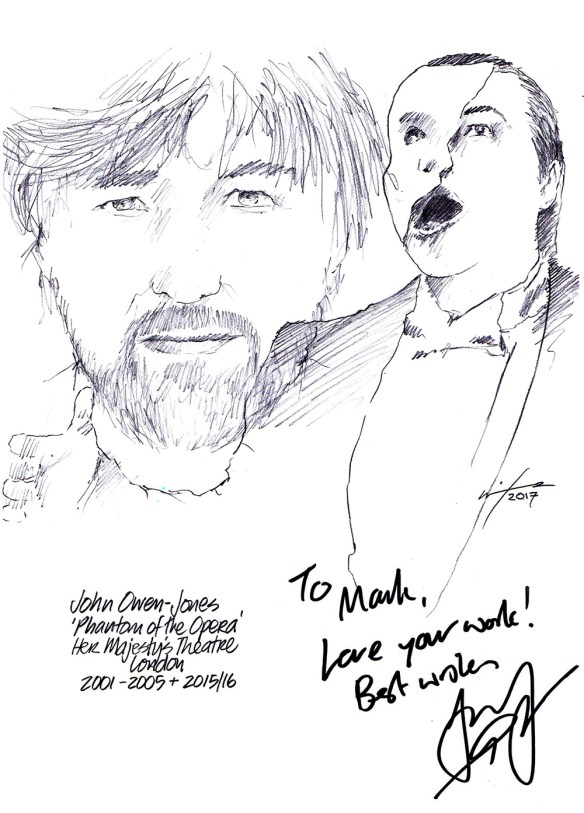 2017
John Owen-Jones
'Phantom of the Opera'
Her Majesty's Theatre
London
2001-2005 + 2015/16
To Mark,
Love your work!
Best wishes